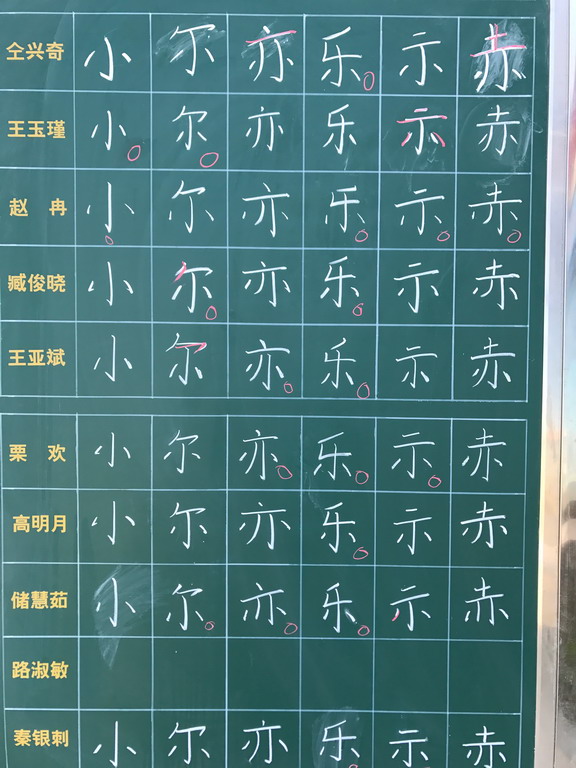 仝兴奇 小 尔 亦 乐 示 赤
王玉瑾 小 尔 亦 乐 示 赤
赵 冉 小 尔 亦 乐 示 赤
臧俊晓 小 尔 亦 乐 示 赤
王亚斌 小 尔 亦 乐 示 赤
栗 欢 小 尔 亦 乐 示 赤
高明月 小 尔 亦 乐 示 赤
储慧茹 小 尔 亦 乐 示 赤
路淑敏
秦银刺 小 尔 亦 乐 示 赤